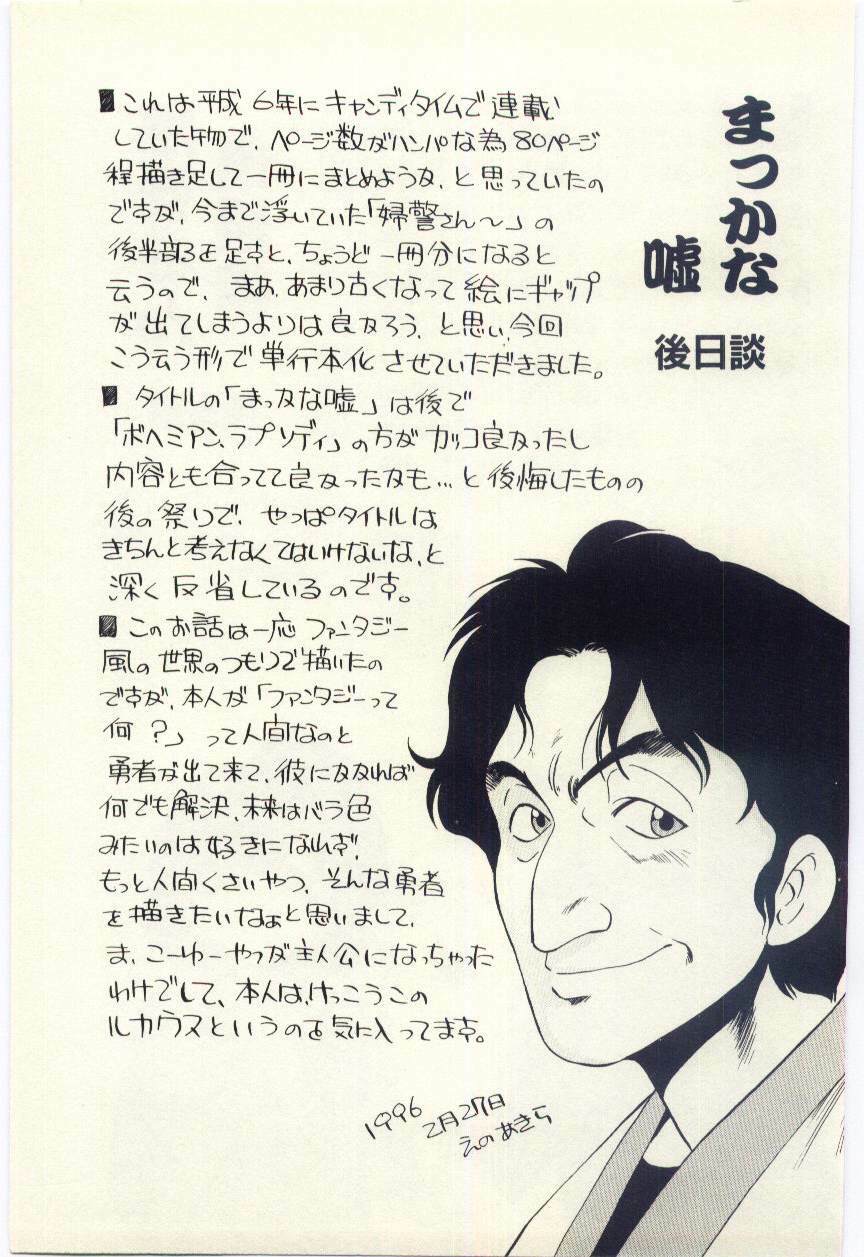 まっかな
嘘
後日談
■これは平成6年にキャンディタイムで連載
していた物で、ページ数がハンパな為80ページ
程描き足して一冊にまとめようか、と思っていたの
ですが、今まで浮いていた「婦警さん〜」の
後半部を足すと、ちょうど一冊分になると
云うので、まあ、あまり古くなって絵にギャップ
が出てしまうよりは良かろう、と思い今回
こう云う形で単行本化させていただきました。
■タイトルの「まっかな嘘」は後で
「ボヘミアン、ラプソディ」の方がカッコ良かったし
内容とも合ってて良かったかも…と後悔したものの
後の祭りで、やっぱタイトルは
きちんと考えなくてはいけないな、と
深く反省しているのです。
■このお話は一応ファンタジー
風の世界のつもりで描いたの
ですが、本人が「ファンタジーって
何?」って人間なのと
勇者が出て来て、彼にかかれば
何でも解決、未来はバラ色
みたいのは好きになれず、
もっと人間くさいやつ、そんな勇者
を描きたいなぁと思いまして、
ま、こーゆーやつが主人公になっちゃった
わけでして、本人は、けっこうこの
ルカウスというのを気に入ってます。
1996 2月27日
えのあきら